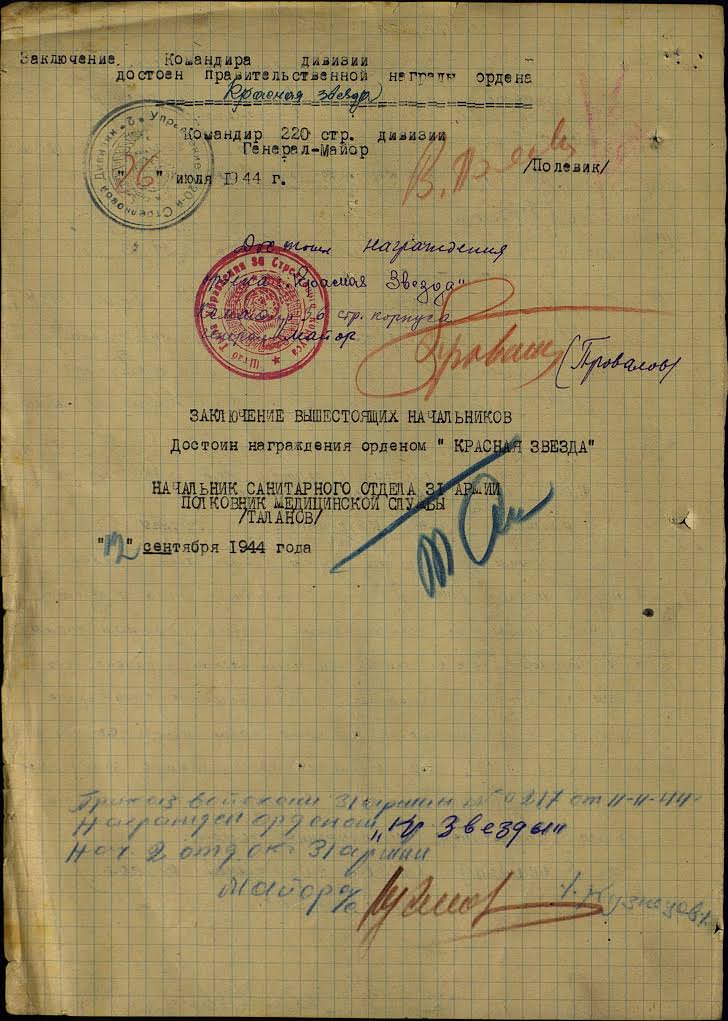 Заключение Командира дивизии
достоен Правительственной награды ордена
Красная звезда
Командир 220 стр. дивизии
Генерал-Майор
/Полевик/
"26" июля 1944 г.
Достоин награждения
ордена „Красная Звезда"
Командир 36 стр. корпуса
генерал-майор
(Провалов)
ЗАКЛЮЧЕНИЕ ВЫШЕСТОЯЩИХ НАЧАЛЬНИКОВ
Достоин награждения орденом " КРАСНАЯ ЗВЕЗДА"
НАЧАЛЬНИК САНИТАРНОГО ОТДЕЛА 31 АРМИИ
ПОЛКОВНИК МЕДИЦИНСКОЙ СЛУЖБЫ
/ТАЛАНОВ/
"12" сентября 1944 года
Приказ войскам 31 армии № 0217 от 11-11-44.
Награжден орденом „Кр Звезды"
Нач. 2 отд ок 31 армии
Майор а/с
/. Кузнецов./